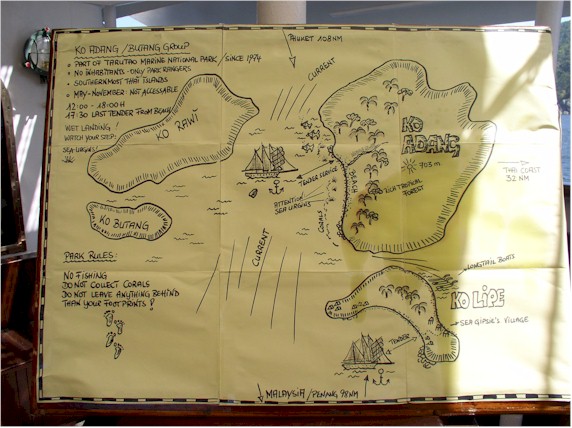 KO ADANG / BUTANG GROUP
PART OF TARUTAO MARINE NATIONAL PARK / SINCE 1974
NO INHABITANTS - ONLY PARK RANGERS
SOUTHERNMOST THAI ISLANDS
MAY-NOVEMBER NOT ACCESSABLE
12:00 - 18:00H
17:30 LAST TENDER FROM BEACH
WET LANDING
WATCH YOUR STEP:
SEA URGINS
PHUKET 108NM
CURRENT
KO RAWI
KO BUTANG
KO
ADANG
703 m
THAI COAST
32 NM
TENDER SERVICE
ATTENTION
SEA URGINS
BEACH
CORALS
RICH TROPICAL
FOREST
CURRENT
PARK RULES:
NO FISHING
DO NOT COLLECT CORALS
DO NOT LEAVE ANYTHING BEHIND
THAN YOUR FOOTPRINTS !
LONGTAIL BOATS
KO LIPE
SEA GIPSIE'S VILLAGE
TENDER
MALAYSIA / PENANG 98NM